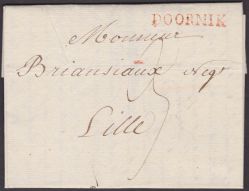 DOORNIK
Monsieur
Briansiaux Negt
Lille